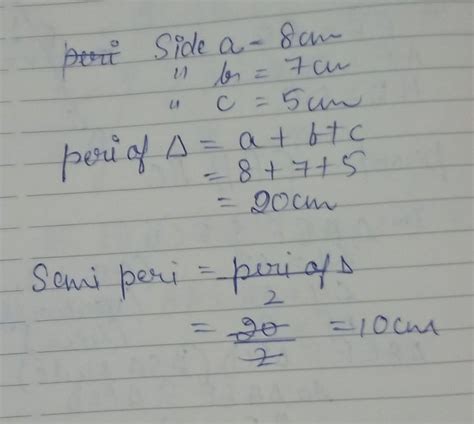 peri Side a = 8cm
" b = 7cm
" c = 5cm
peri of Δ = a + b + c
= 8 + 7 + 5
= 20cm
Semi peri = peri of Δ
2
= 20 = 10cm
2